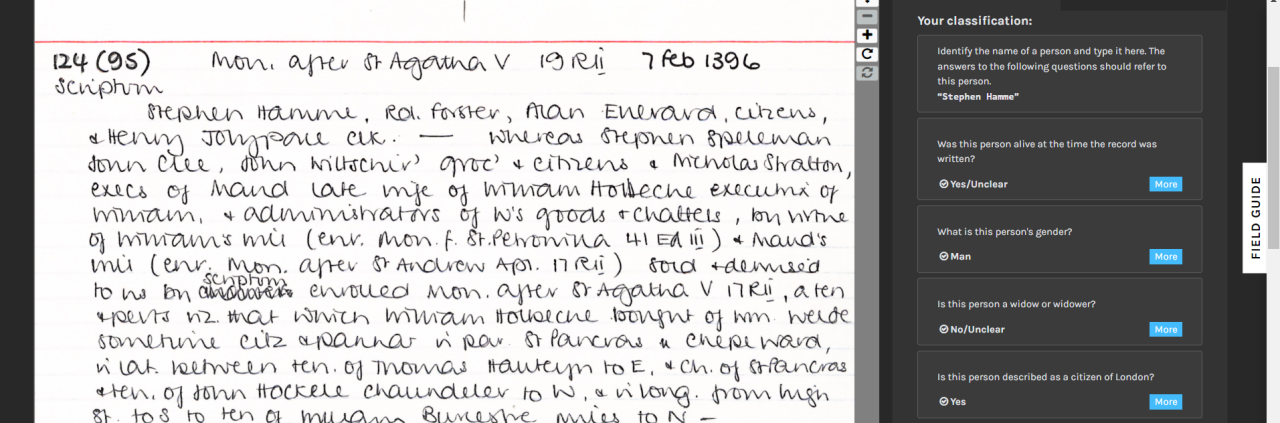 124 (95) Mon. after St Agatha V 19 Rii 7 Feb 1396
Scriptum
Stephen Hamme, Rd. Forster, Alan Everard, citizens,
& Henry Jolypace clk. — whereas Stephen Speleman
John Clee, John Wiltschir' groc' & citizens & Nicholas Stratton,
execs of Maud late wife of William Holbeche executrix of
William, & administrators of W's goods & chattels, by virtue
of William's will (enr. Mon. f. St. Petronilla 41 Ed iii) & Maud's
will (enr. Mon. after St Andrew Apr. 17 Rii) sold & demised
scriptum
to us by enrolled Mon. after St Agatha V 17 Rii, a ten
& perts viz. that which William Holbeche bought of Wm. Welde
sometime citz & pannar in par. St Pancras in Chepe Ward,
in lat. between ten. of Thomas Hauteyn to E, & Ch. of St Pancras
& ten. of John Hockele chaundeler to W, & in long. from high
St. to S to ten of William to N –
Your classification:
Identify the name of a person and type it here. The
answers to the following questions should refer to
this person.
"Stephen Hamme"
Was this person alive at the time the record was
written?
Yes/Unclear More
What is this person's gender?
Man More
Is this person a widow or widower?
No/Unclear More
Is this person described as a citizen of London?
Yes More
FIELD GUIDE